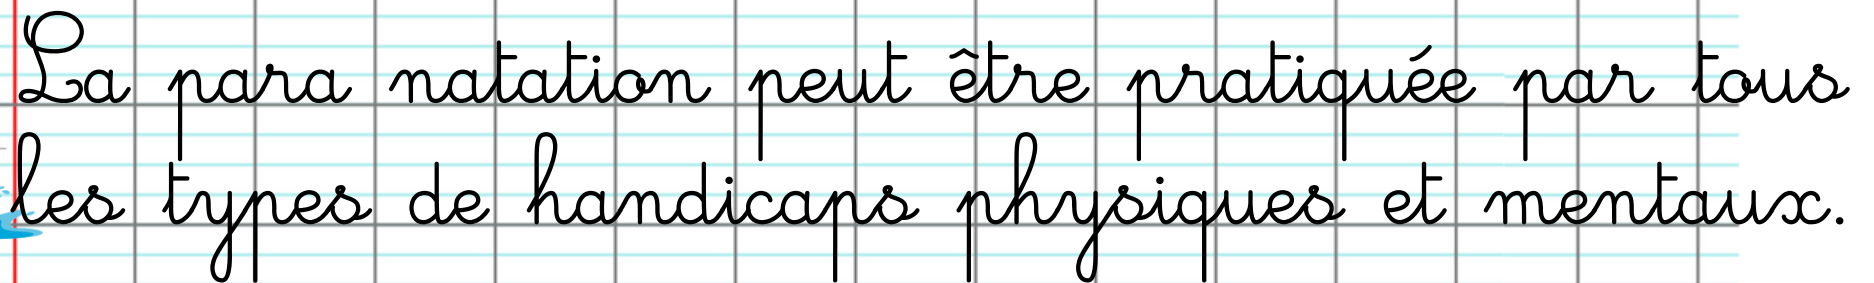 La para natation peut être pratiquée par tous
les types de handicaps physiques et mentaux.